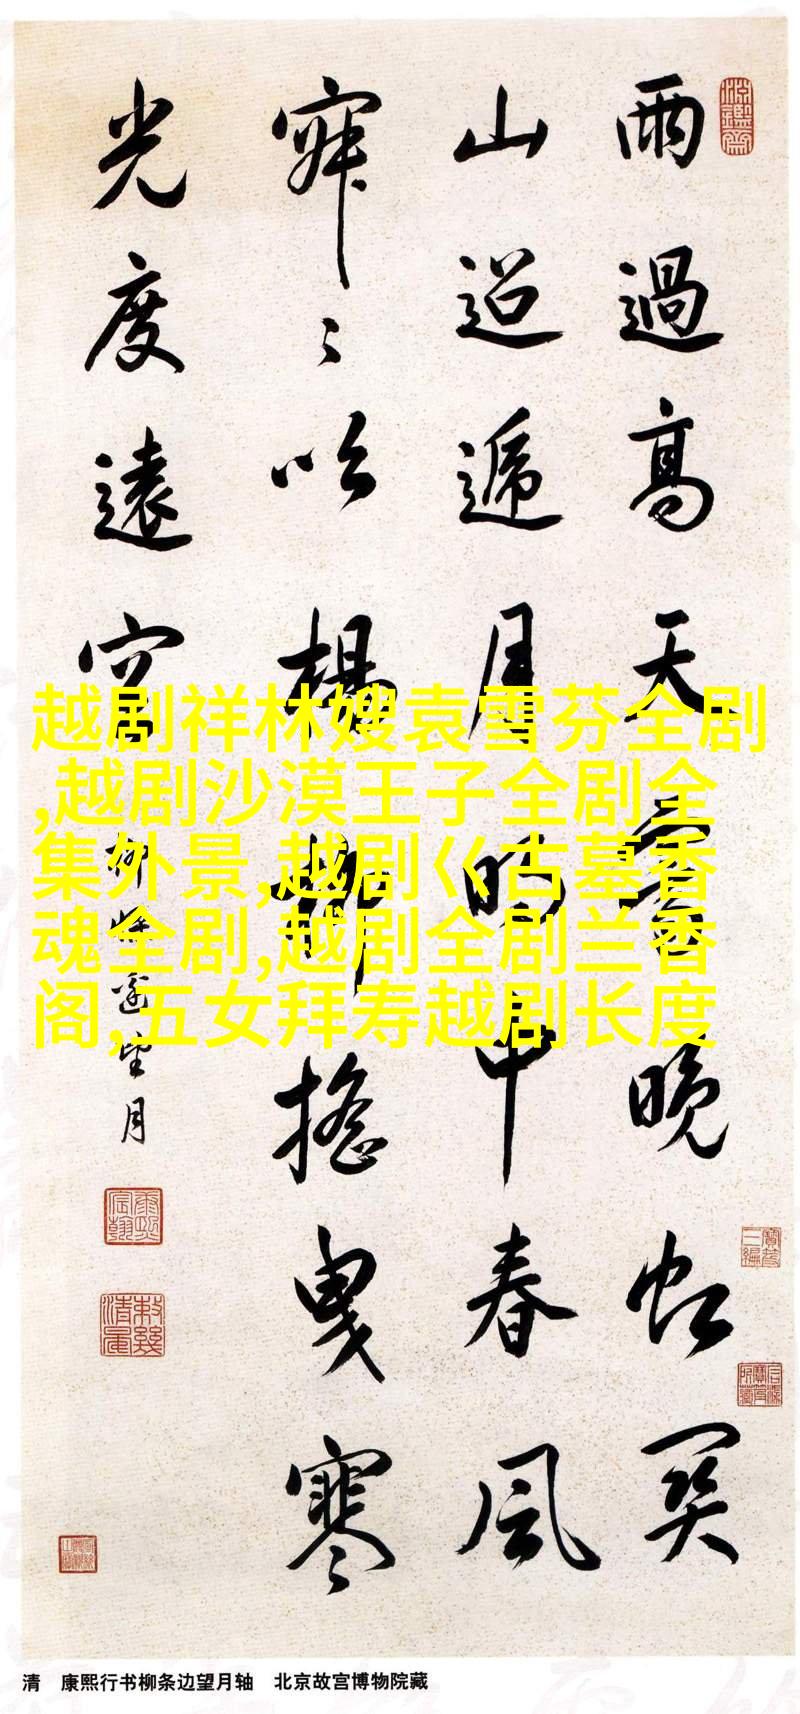 雨過高天霽晚虹関
山迢遞月明中春風
寂〻吹楊柳搖曳寒
光度遠空
柳條邊望月
越剧祥林嫂袁雪芬全剧
,越剧沙漠王子全剧全
集外景,越剧巜古墓香
魂全剧,越剧全剧兰香
阁,五女拜寿越剧长度
清 康熙行书柳条边望月轴 北京故宫博物院藏